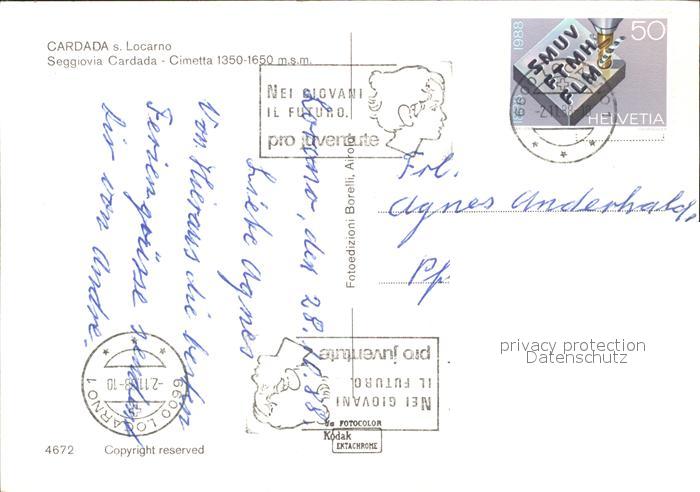 CARDADA s. Locarno
Seggiovia Cardada - Cimetta 1350-1650 m.s.m.
NEI GIOVANI
IL FUTURO.
pro juventute
1888 1988
SMUV
FTMH
FLM
50
HELVETIA
Locarno, den 28.10.88.
Liebe Agnes
Von Hieraus die besten
Feriengrüsse sendend
dir von André.
Fotoedizioni Borelli, Airolo
Frl.
Agnes Anderhald,
Pf
privacy protection
Datenschutz
pro juventute
NEI GIOVANI
IL FUTURO.
6600 LOCARNO 1
-2.11.88-10
da FOTOCOLOR
Kodak
EKTACHROME
4672 Copyright reserved